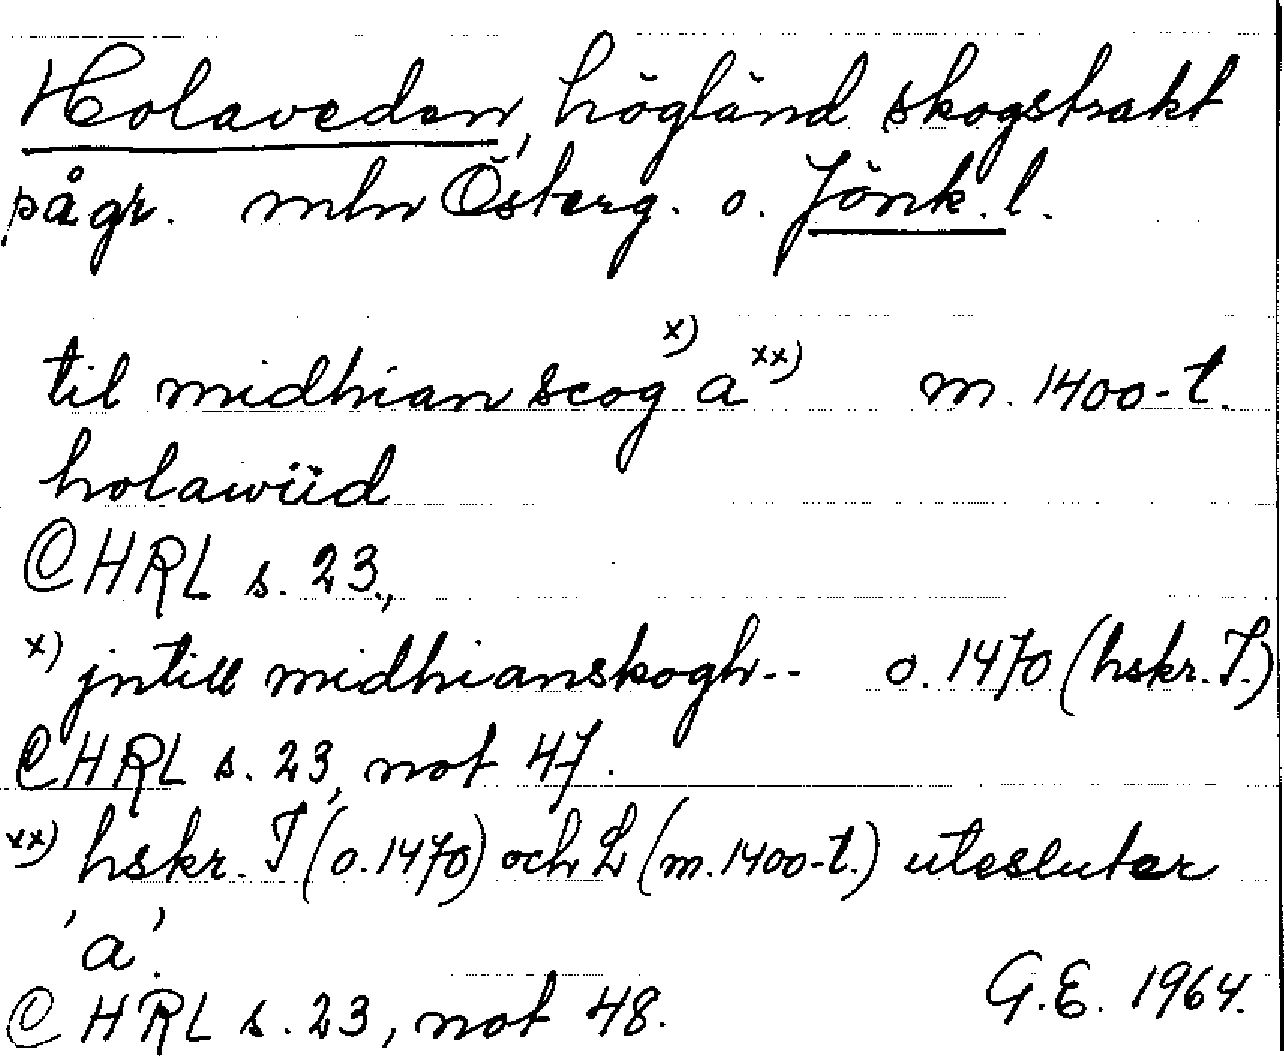 Holaveden, högländ skogstrakt
på gr. mln Österg. o. Jönk. l.
til midhian scog x) a xx) m. 1400-t.
holawiid
CHRL s. 23.,
x) jntill midhianskogh-- o. 1470 (hskr. T.)
CHRL s. 23, not 47.
xx) hskr. T (o. 1470) och L (m. 1400-t.) utesluter
'a'.
CHRL s. 23, not 48. G.E. 1964.